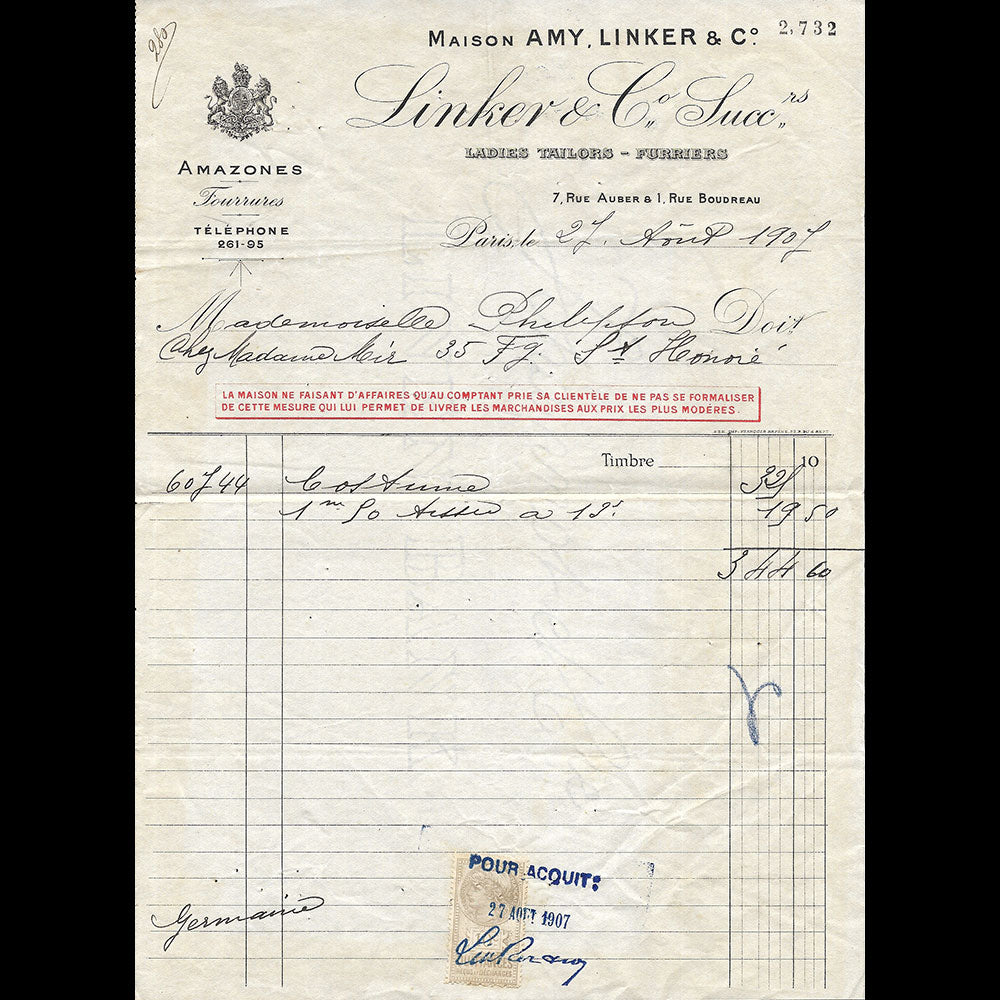 280
MAISON AMY, LINKER & Co. 2,732
Linker & Co Succrs
LADIES TAILORS - FURRIERS
AMAZONES
Fourrures
TÉLÉPHONE
261-95
7, RUE AUBER & 1, RUE BOUDREAU
Paris, le 27 Août 1907
Mademoiselle Doit
Chez Madame Mir 35 Fg. St Honoré
LA MAISON NE FAISANT D'AFFAIRES QU'AU COMPTANT PRIE SA CLIENTÈLE DE NE PAS SE FORMALISER
DE CETTE MESURE QUI LUI PERMET DE LIVRER LES MARCHANDISES AUX PRIX LES PLUS MODÉRÉS.
Timbre 10
60744 Costume 325
1m 50 tissu a 13f 19 50
344 60
POUR ACQUIT:
27 AOUT 1907
Germaine